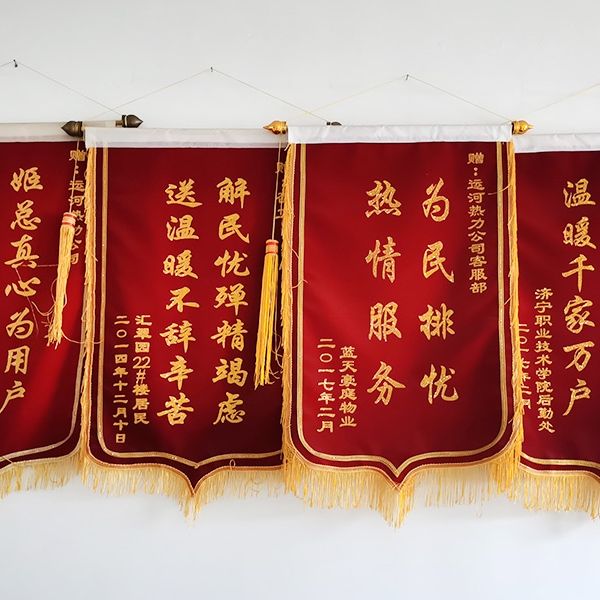 赠：运河热力公司
姬总真心为用户
解民忧殚精竭虑
送温暖不辞辛苦
汇翠园22#楼居民
二〇一四年十二月十日
赠：运河热力公司客服部
为民排忧
热情服务
蓝天豪庭物业
二〇一七年二月
温暖千家万户
济宁职业技术学院后勤处